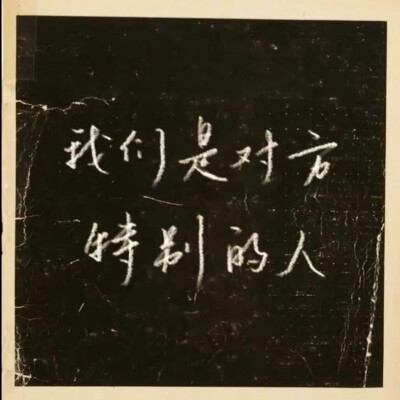 我们是对方
特别的人